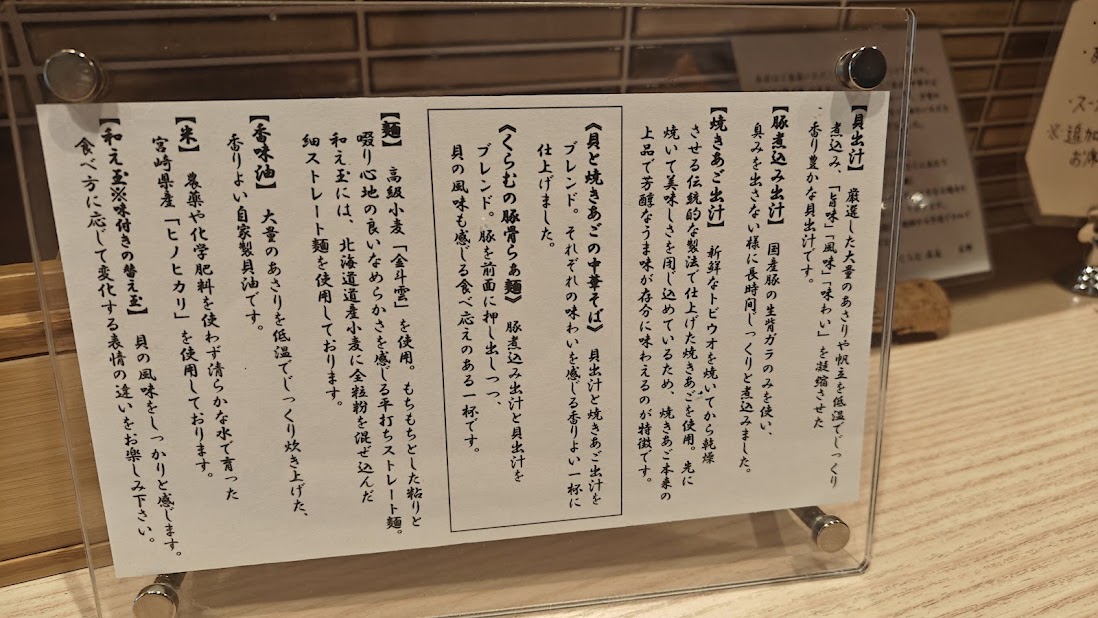 【貝出汁】　厳選した大量のあさりや帆立を低温でじっくり
煮込み、「旨味」「風味」「味わい」を凝縮させた
香り豊かな貝出汁です。
【豚煮込み出汁】　国産豚の生背ガラのみを使い、
臭みを出さない様に長時間じっくりと煮込みました。
【焼きあご出汁】　新鮮なトビウオを焼いてから乾燥
させる伝統的な製法で仕上げた焼きあごを使用。先に
焼いて美味しさを閉じ込めているため、焼きあご本来の
上品で芳醇なうま味が存分に味わえるのが特徴です。
《貝と焼きあごの中華そば》　貝出汁と焼きあご出汁を
ブレンド。それぞれの味わいを感じる香りよい一杯に
仕上げました。
《くらむの豚骨らぁ麺》　豚煮込み出汁と貝出汁を
ブレンド。豚を前面に押し出しつつ、
貝の風味も感じる食べ応えのある一杯です。
【麺】　高級小麦「金斗雲」を使用。もちもちとした粘りと
啜り心地の良いなめらかさを感じる平打ちストレート麺。
和え玉には、北海道道産小麦に全粒粉を混ぜ込んだ
細ストレート麺を使用しております。
【香味油】　大量のあさりを低温でじっくり炊き上げた、
香りよい自家製貝油です。
【米】　農薬や化学肥料を使わず清らかな水で育った
宮崎県産「ヒノヒカリ」を使用しております。
【和え玉※味付きの替え玉】　貝の風味をしっかりと感じます。
食べ方に応じて変化する表情の違いをお楽しみ下さい。